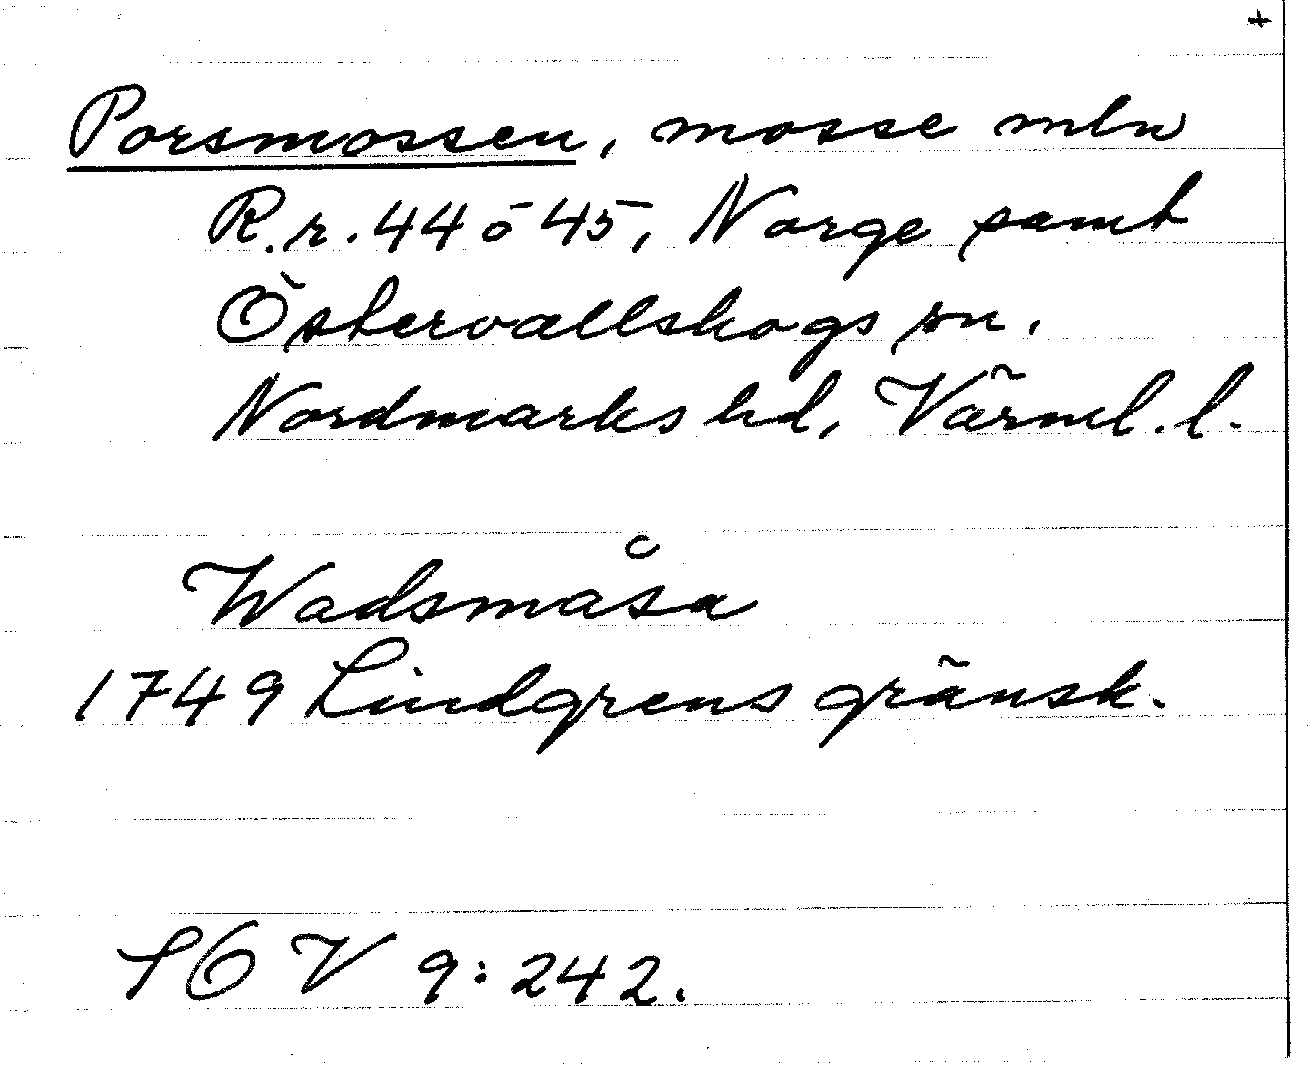 +
Porsmossen, mosse mln
R.r. 44 o 45, Norge samt
Östervallskogs sn.
Nordmarks hd, Värml. l.
Wadsmåsa
1749 Lindgrens gränsk.
SOV 9: 242.